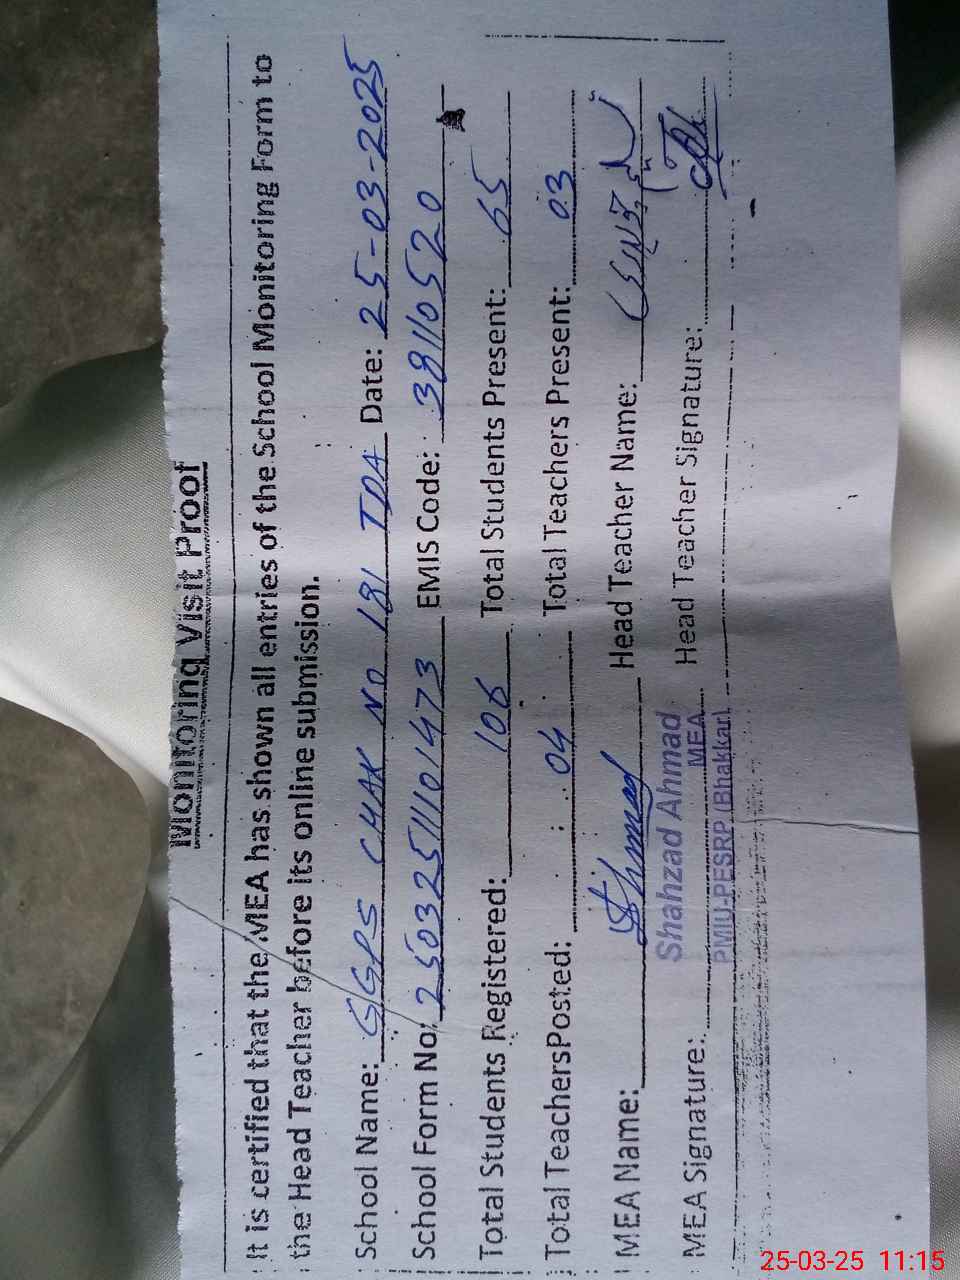 Monitoring Visit Proof
It is certified that the MEA has shown all entries of the School Monitoring Form to
the Head Teacher before its online submission.
School Name: GGPS CHAK NO 181 TDA Date: 25-03-2025
School Form No: 25032511101473 EMIS Code: 38110520
Total Students Registered: 106 Total Students Present: 65
Total TeachersPosted: 04 Total Teachers Present: 03
MEA Name: Head Teacher Name:
Shahzad Ahmad
MEA Signature: MEA Head Teacher Signature:
PMIU-PESRP (Bhakkar)
25-03-25 11:15